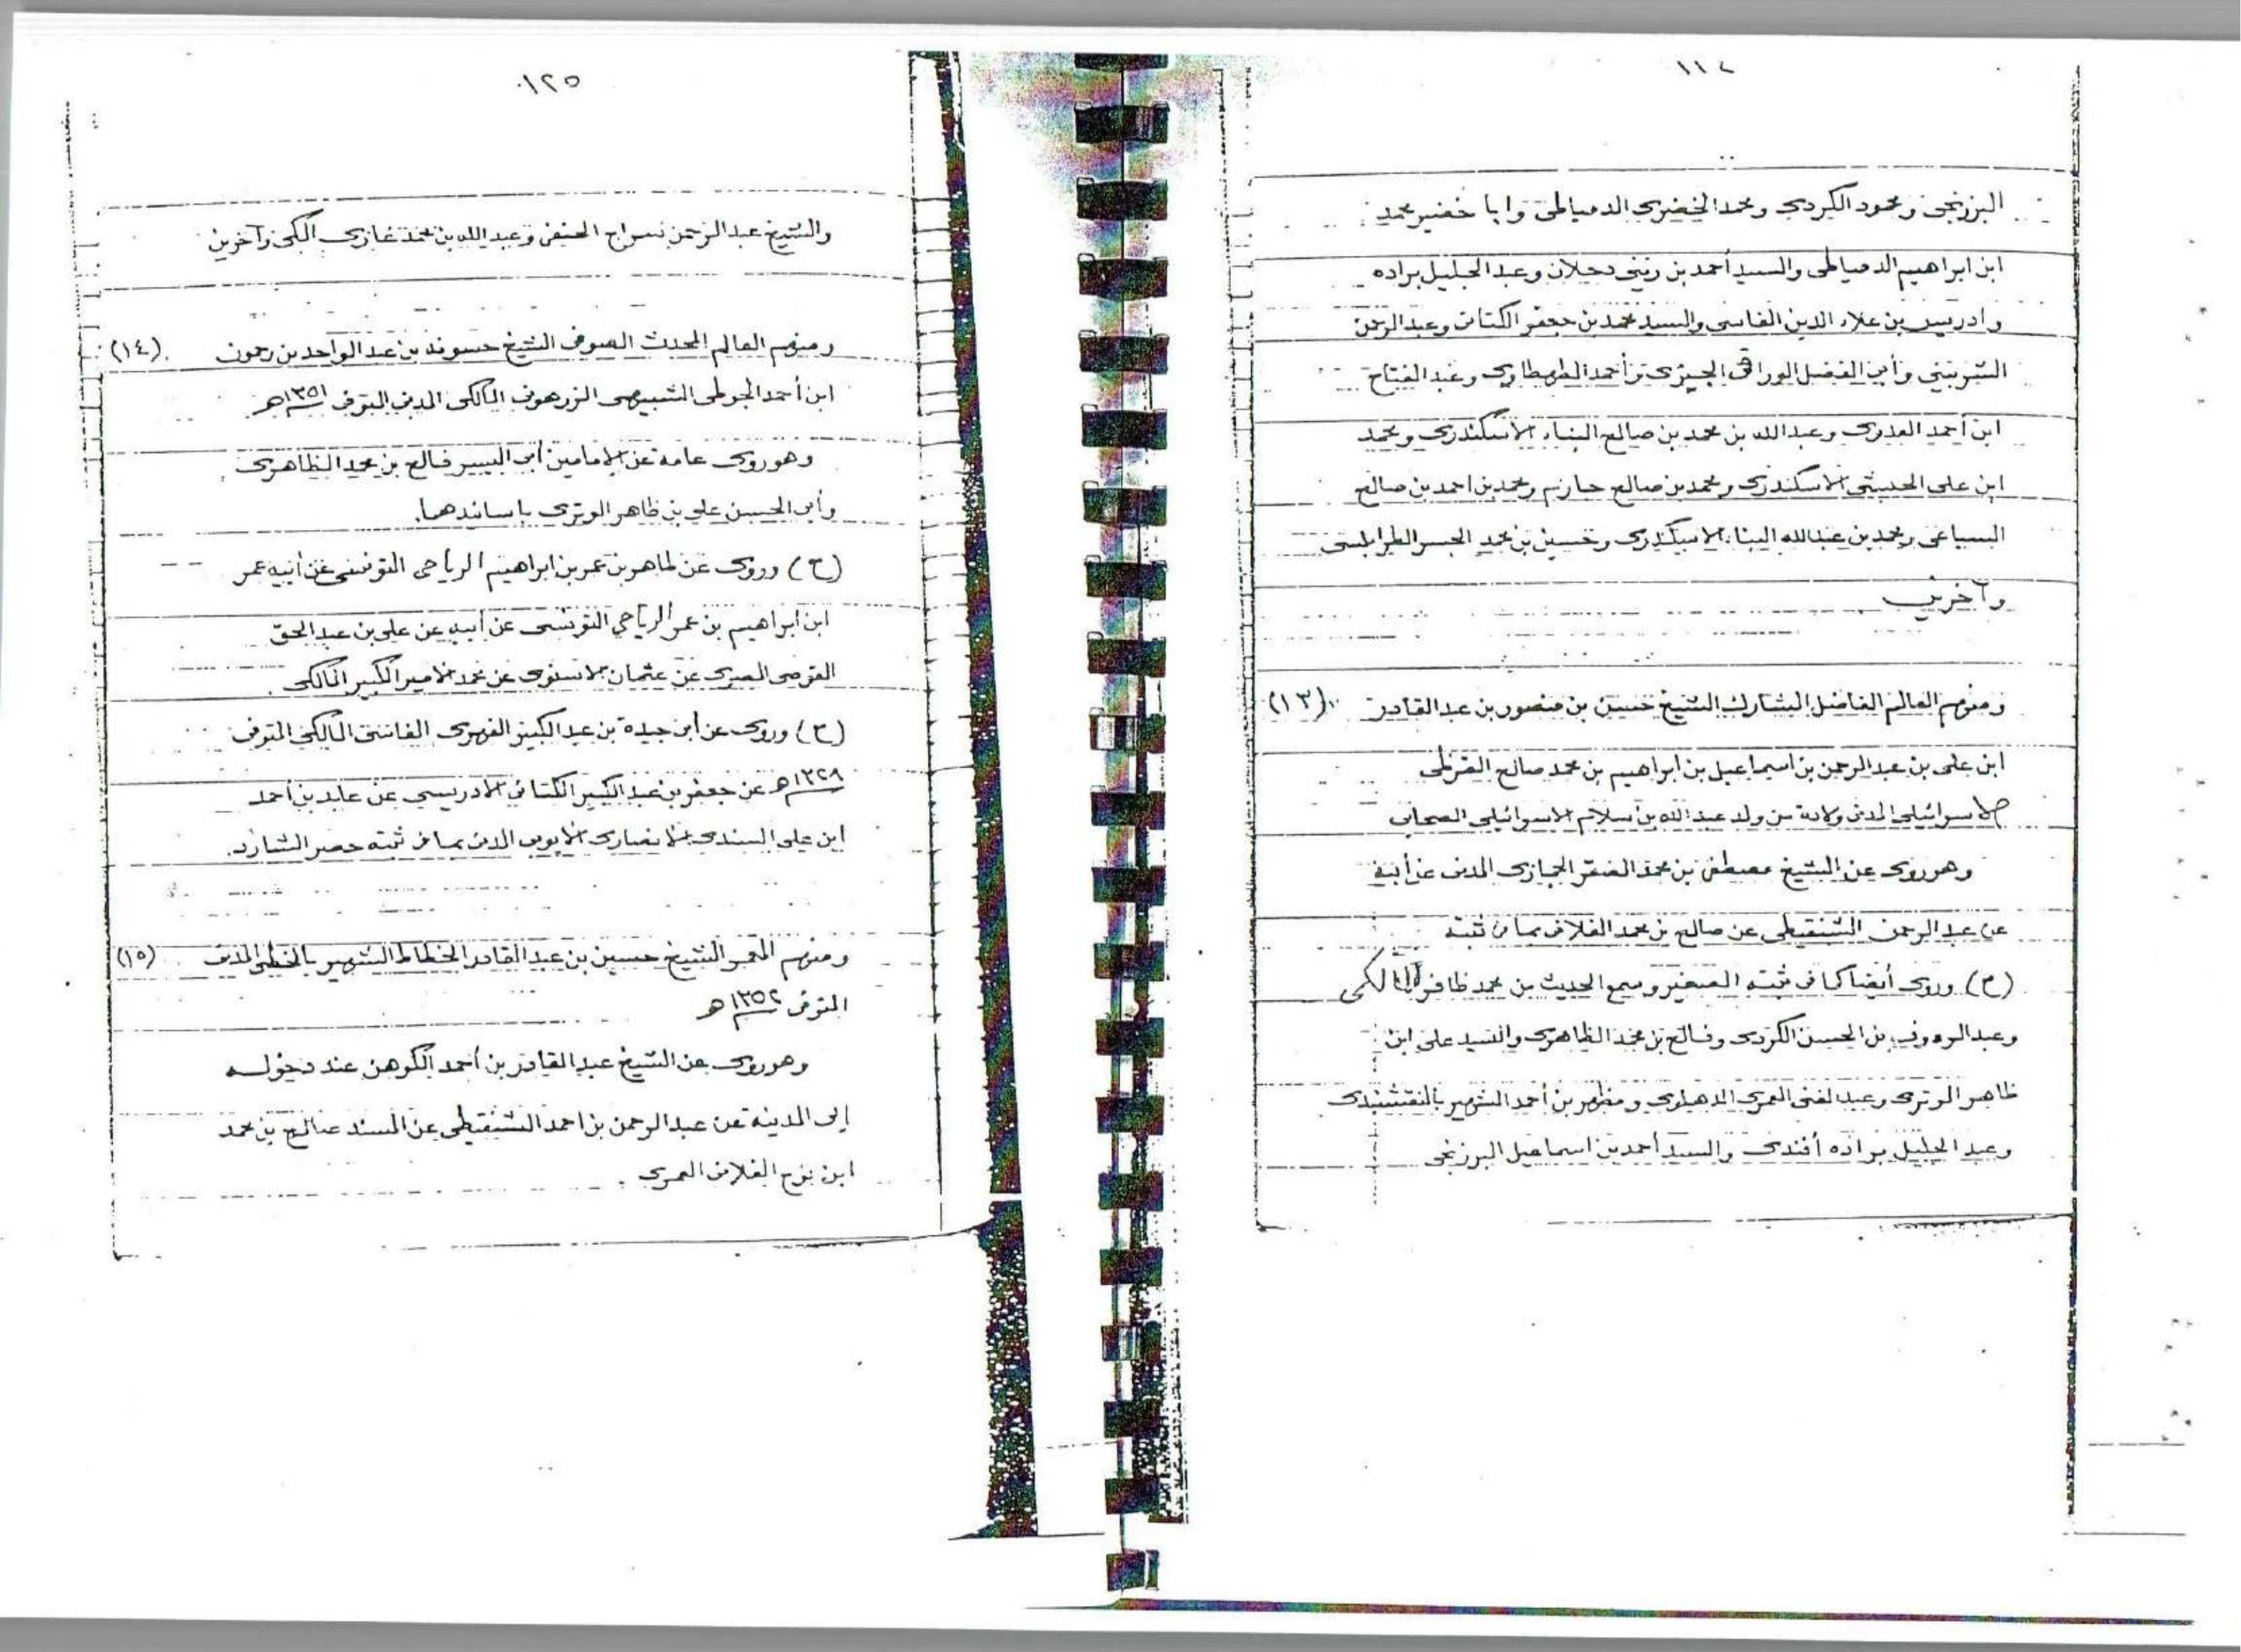 ١١٤
البرزنجى ومحمود الكردى ومحمد الخضرى الدمياطى وابا خضير محمد
ابن ابراهيم الدمياطى والسيد أحمد بن زينى دحلان وعبد الجليل براده
وادريس بن علاء الدين الفاسى والسيد محمد بن جعفر الكتانى وعبد الرحمن
الشربينى وأبى الفضل الوراقى الجيزى وأحمد الطهطاوى وعبد الفتاح
ابن أحمد العدوى وعبد الله بن محمد بن صالح البناء الاسكندرى ومحمد
ابن على الحبشى الاسكندرى ومحمد بن صالح حازم ومحمد بن احمد بن صالح
السباعى ومحمد بن عبد الله البناء الاسكندرى وحسين بن محمد الجسر الطرابلسى
وآخرين
ومنهم العالم الفاضل المشارك الشيخ حسين بن منصور بن عبد القادر (١٣)
ابن على بن عبد الرحمن بن اسماعيل بن ابراهيم بن محمد صالح القرظى
الاسرائيلى المدنى ولادة من ولد عبد الله بن سلام الاسرائيلى الصحابى
وهو روى عن الشيخ مصطفى بن محمد الصقر الحجازى المدنى عن أبيه
عن عبد الرحمن الشنقيطى عن صالح بن محمد الفلانى بما فى ثبته
(ح) وروى أيضا كما فى ثبته الصغير وسمع الحديث من محمد ظافر المالكى
وعبد الرءوف بن الحسن الكردى وفالح بن محمد الظاهرى والسيد على ابن
ظاهر الوترى وعبد الغنى العمرى الدهلوى ومظهر بن أحمد الشهير بالنقشبندى
وعبد الجليل براده أفندى والسيد أحمد بن اسماعيل البرزنجى
١٢٥
والشيخ عبد الرحمن سراج الحنفى وعبد الله بن محمد غازى المكى وآخرين
ومنهم العالم المحدث الصوفى الشيخ حسونه بن عبد الواحد بن رحمون (١٤)
ابن أحمد الجوطى الشبيهى الزرهونى المالكى المدنى المتوفى ١٣٥١هـ
وهو روى عامة عن الإمامين أبى اليسير فالح بن محمد الظاهرى
وأبى الحسن على بن ظاهر الوترى باسانيدهما.
(ح) وروى عن طاهر بن عمر بن ابراهيم الرياحى التونسى عن أبيه عمر
ابن ابراهيم بن عمر الرياحى التونسى عن أبيه عن على بن عبد الحق
القوصى المصرى عن عثمان الاسنوى عن محمد الامير الكبير المالكى
(ح) وروى عن أبى جيدة بن عبد الكبير الفهرى الفاسى المالكى المتوفى
١٣٢٨هـ عن جعفر بن عبد الكبير الكتانى الادريسى عن عابد بن أحمد
ابن على السندى الانصارى الايوبى المدنى بما فى ثبته حصر الشارد.
ومنهم المعمر الشيخ حسين بن عبد القادر الخطاط الشهير بالخطى المدنى (١٥)
المتوفى ١٣٥٢هـ
وهو روى عن الشيخ عبد القادر بن أحمد الكوهن عند دخوله
إلى المدينة عن عبد الرحمن بن احمد الشنقيطى عن المسند صالح بن محمد
ابن نوح الفلانى العمرى.